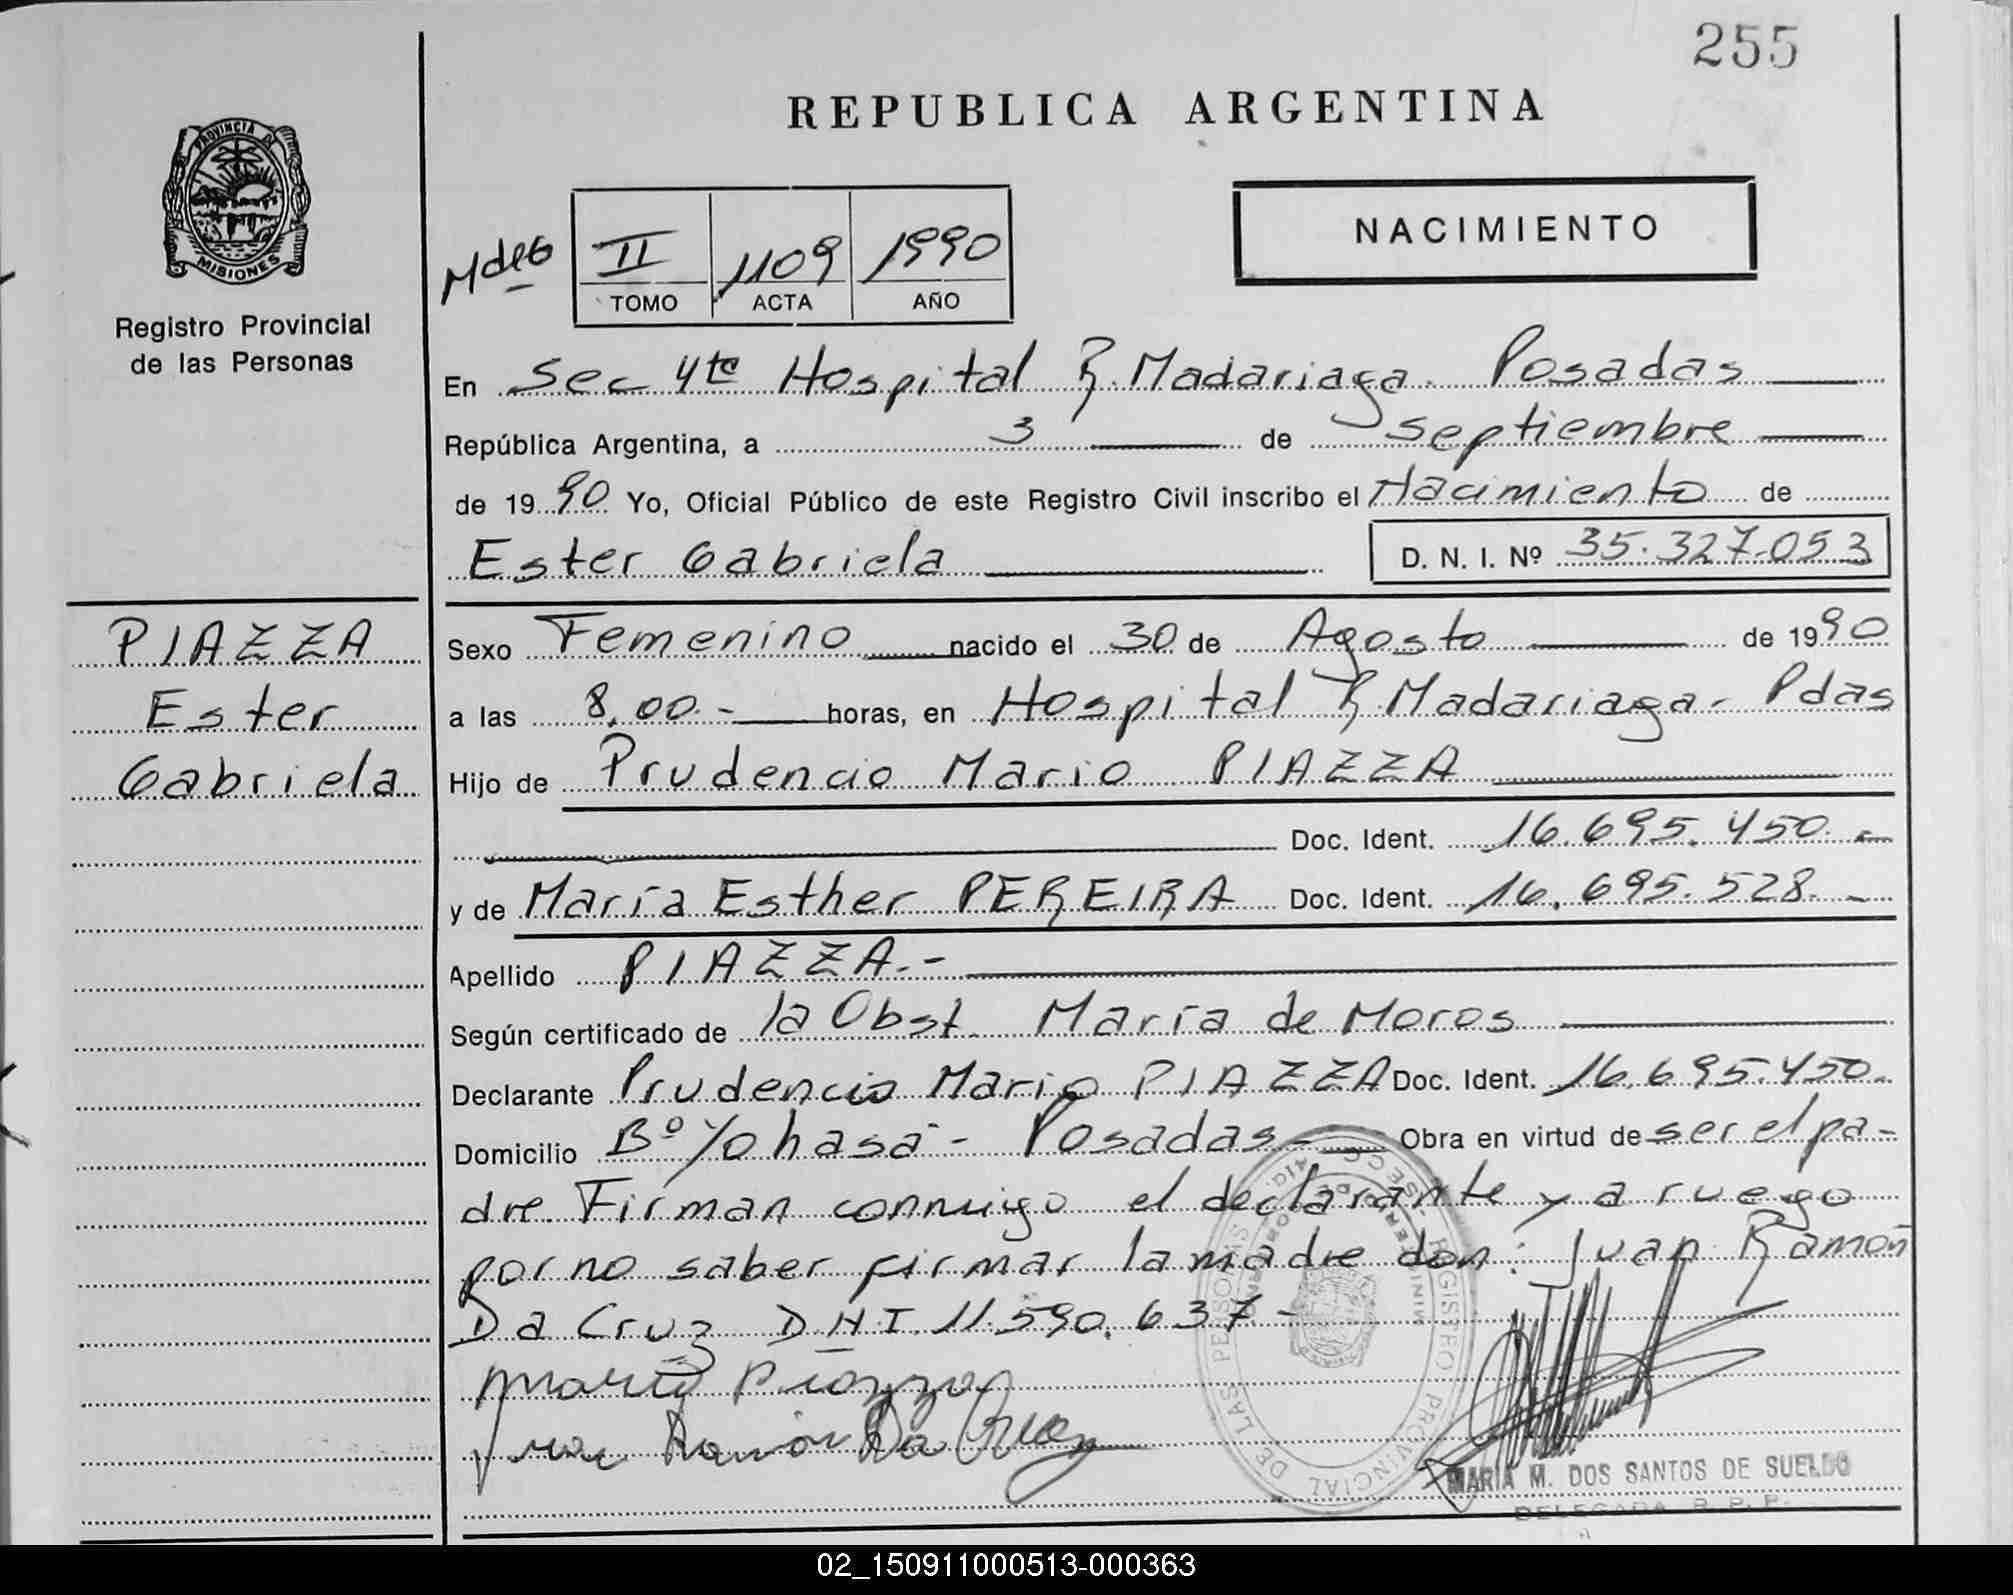 255
REPUBLICA ARGENTINA
PROVINCIA DE
MISIONES
Registro Provincial
de las Personas
II 1109 1990
TOMO ACTA AÑO
NACIMIENTO
En Sec 4ta Hospital R. Madariaga. Posadas
República Argentina, a 3 de septiembre
de 1990 Yo, Oficial Público de este Registro Civil inscribo el Nacimiento de
Ester Gabriela D. N. I. Nº 35.327.053
PIAZZA
Ester
Gabriela
Sexo Femenino nacido el 30 de Agosto de 1990
a las 8,00.- horas, en Hospital R. Madariaga- Pdas
Hijo de Prudencio Mario PIAZZA
Doc. Ident. 16.695.450.-
y de María Esther PEREIRA Doc. Ident. 16.695.528.-
Apellido PIAZZA.-
Según certificado de la Obst. María de Moros
Declarante Prudencio Mario PIAZZA Doc. Ident. 16.695.450.
Domicilio Bº Yohasá- Posadas- Obra en virtud de ser el pa-
dre Firman conmigo el declarante y a ruego
por no saber firmar la madre don: Juan Ramón
Da Cruz DNI. 11.590.637-
Mario Piazza
Juan Ramón Da Cruz
REGISTRO PROVINCIAL DE LAS PERSONAS
MARIA M. DOS SANTOS DE SUELDO
DELEGADA R. P. P.
02_150911000513-000363